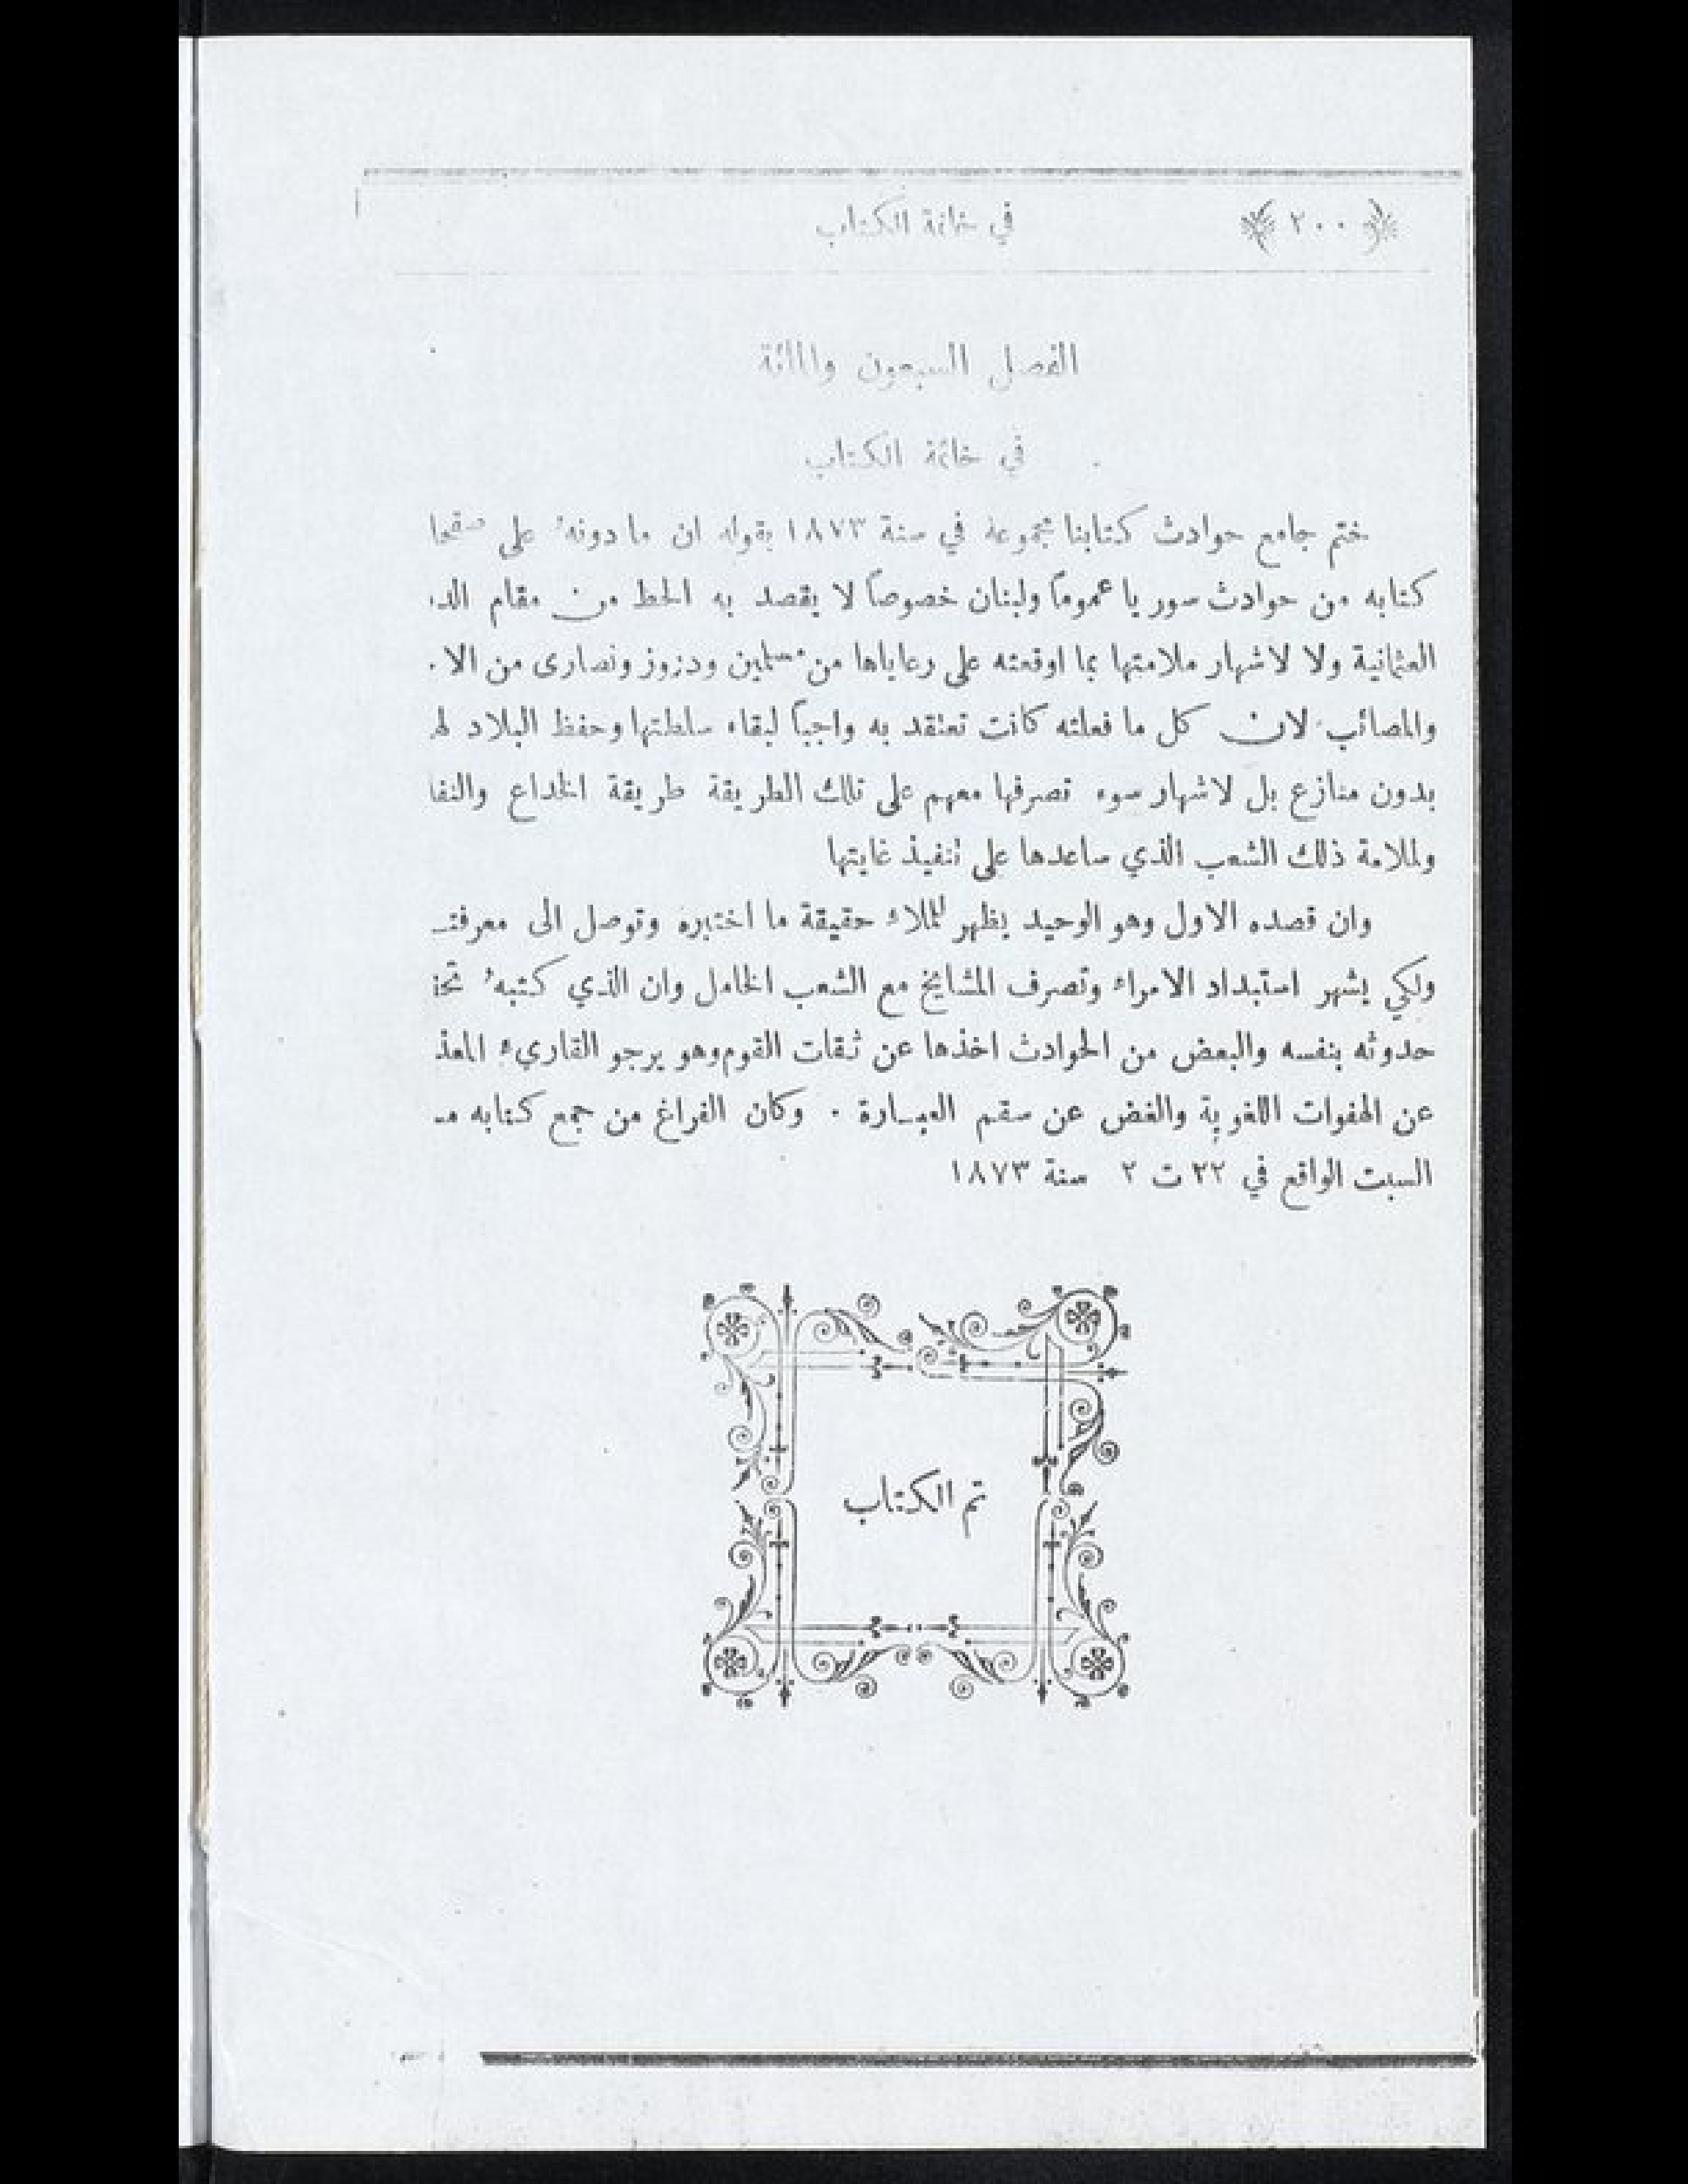 ﴿ ٢٠٠ ﴾ في خاتمة الكتاب
الفصل السبعون والمائة
في خاتمة الكتاب
ختم جامع حوادث كتابنا مجموعهُ في سنة ١٨٧٣ بقوله ان ما دونهُ على صفحا
كتابه من حوادث سوريا عموماً ولبنان خصوصاً لا يقصد به الحط من مقام
العثمانية ولا لاشهار ملامتها بما اوقعته على رعاياها من مسلمين ودروز ونصارى من
والمصائب لان كل ما فعلته كانت تعتقد به واجباً لبقاء سلطتها وحفظ البلاد
بدون منازع بل لاشهار سوء تصرفها معهم على تلك الطريقة طريقة الخداع والنفا
ولملامة ذلك الشعب الذي ساعدها على تنفيذ غايتها
وان قصده الاول وهو الوحيد يظهر للملاء حقيقة ما اختبره وتوصل الى معرفتـ
ولكي يشهر استبداد الامراء وتصرف المشايخ مع الشعب الخامل وان الذي كتبهُ
حدوثه بنفسه والبعض من الحوادث اخذها عن ثقات القوم وهو يرجو القاريء المعذ
عن الهفوات اللغوية والغض عن سقم العبارة . وكان الفراغ من جمع كتابه
السبت الواقع في ٢٢ ت ٢ سنة ١٨٧٣
تم الكتاب